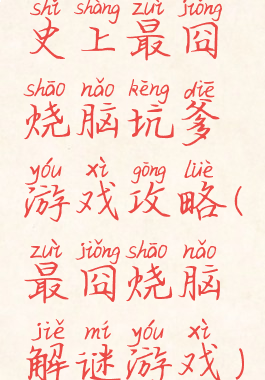 shǐ shàng zuì jiǒng
史上最囧
shāo nǎo kēng diē
烧脑坑爹
yóu xì gōng lüè
游戏攻略(
zuì jiǒng shāo nǎo
最囧烧脑
jiě mí yóu xì
解谜游戏)